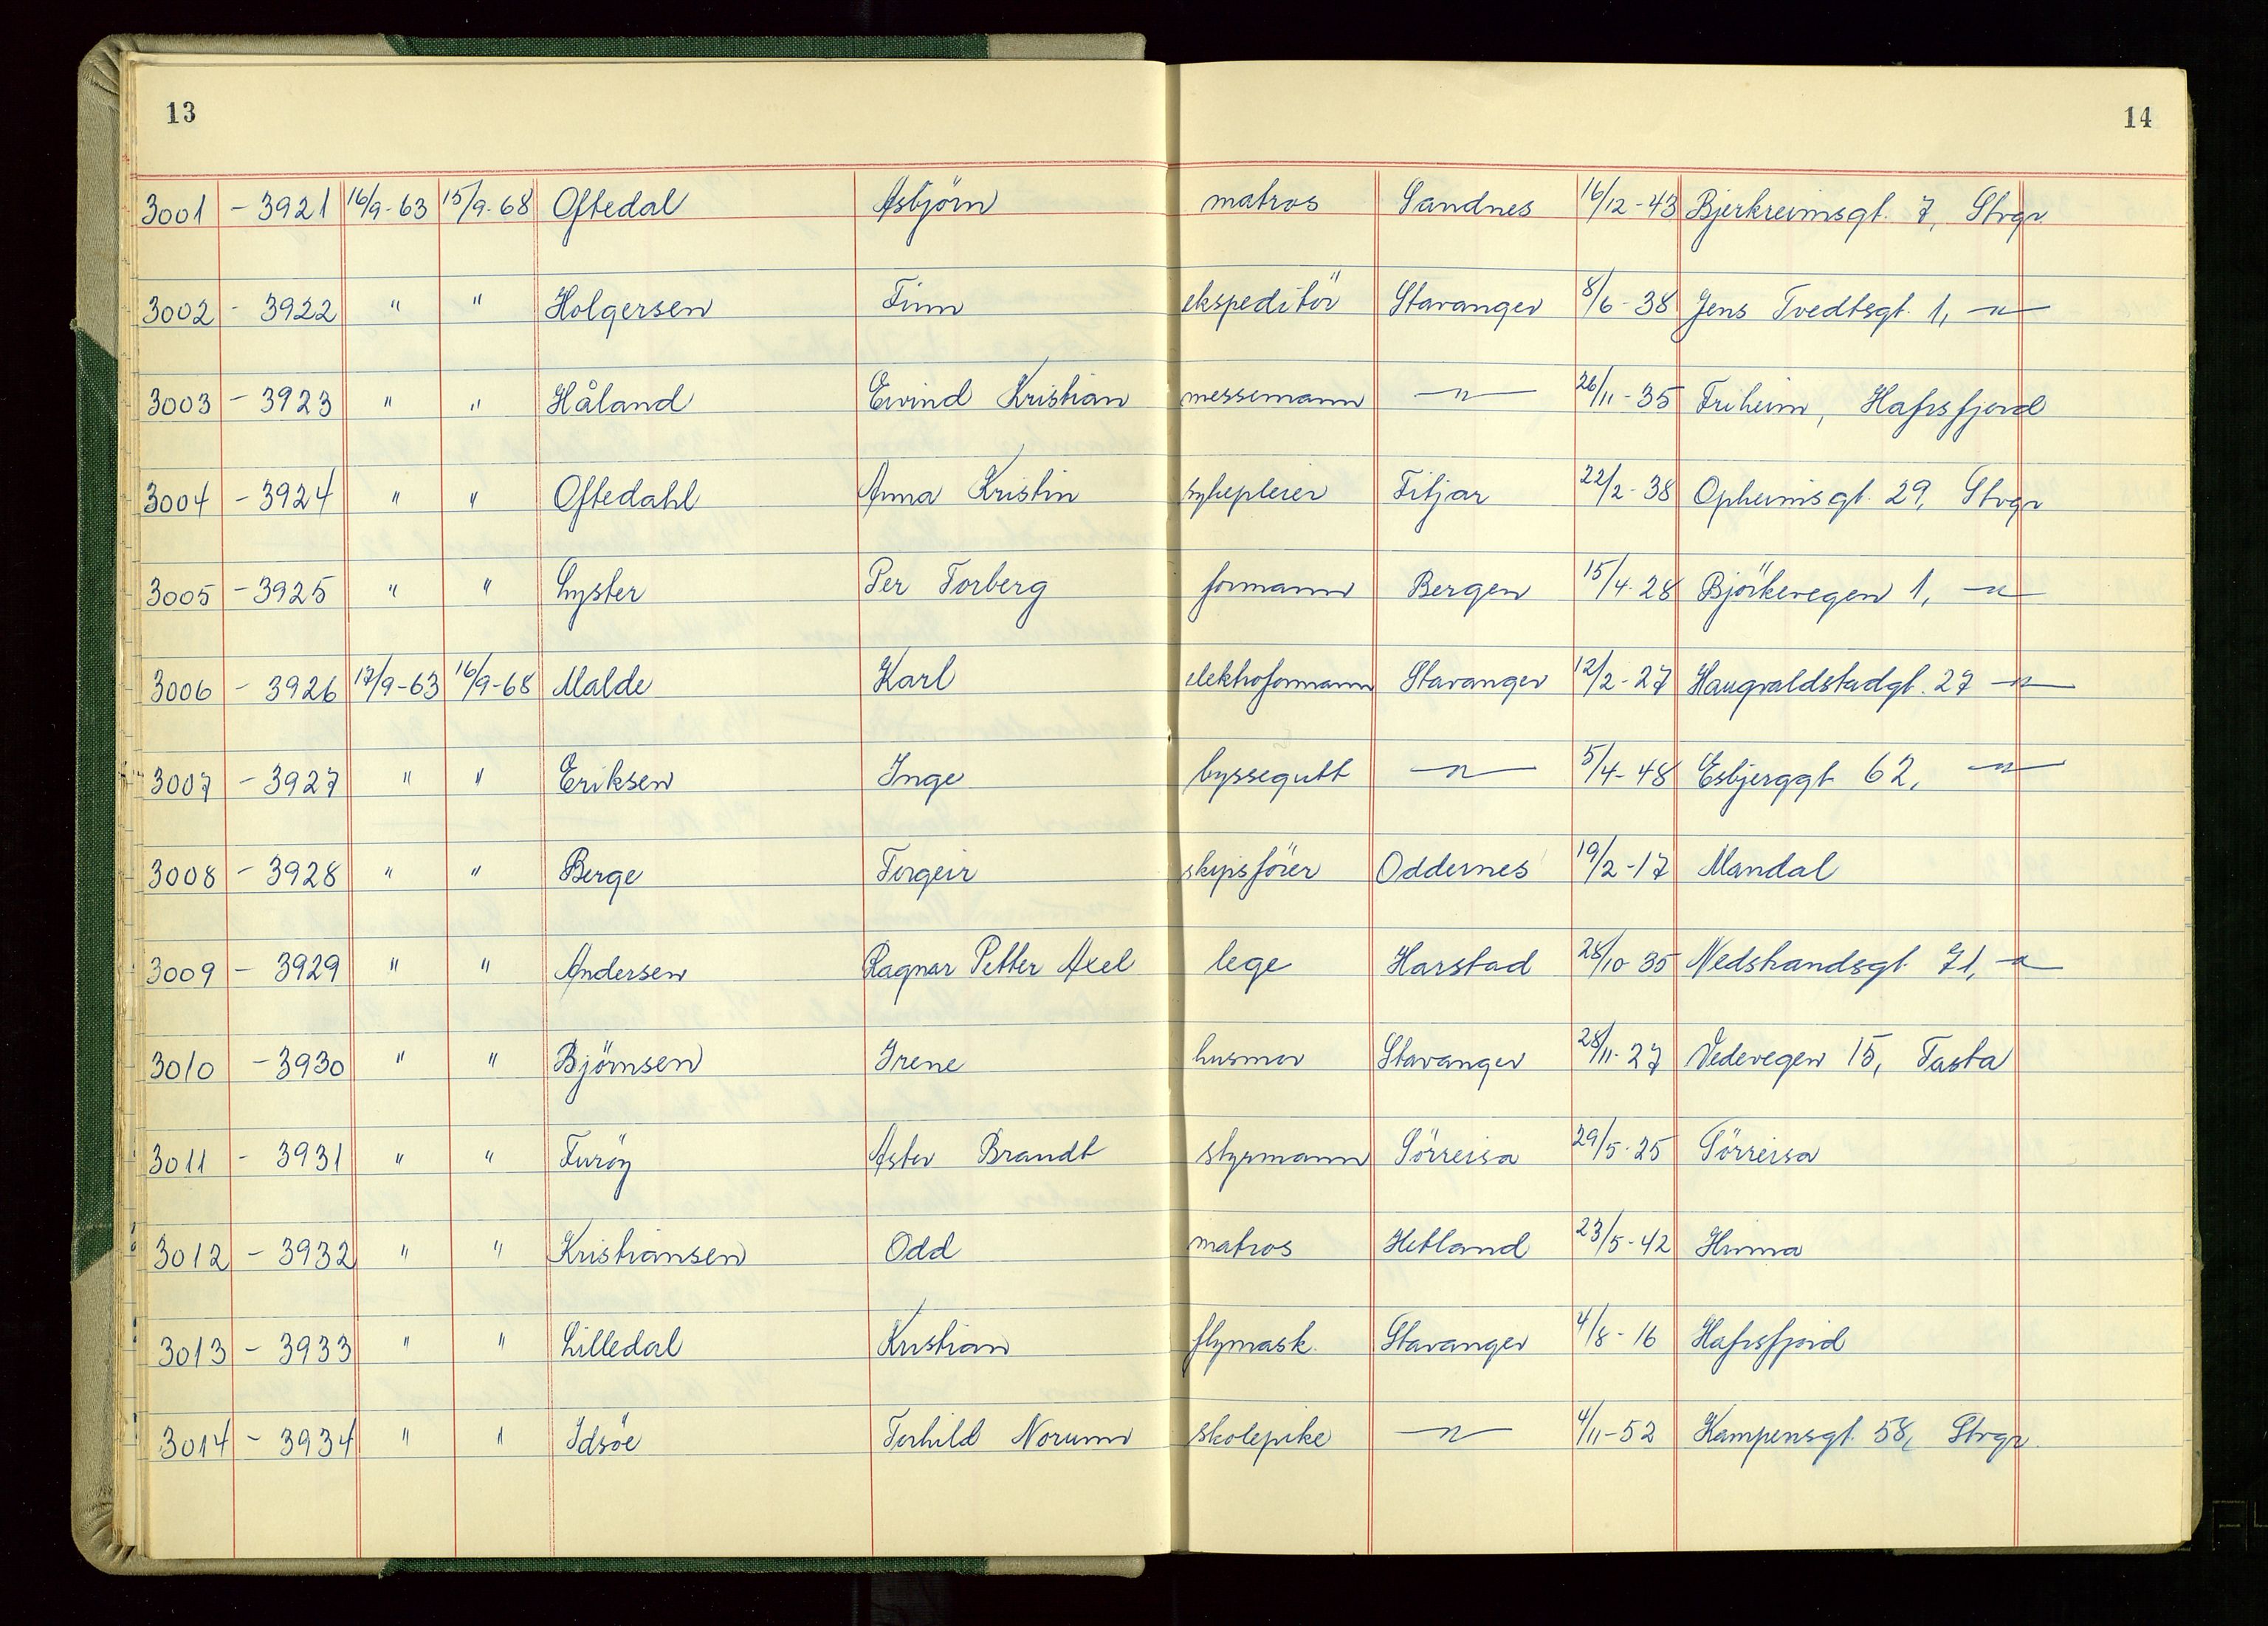 13 14
3001 - 3921 16/9-63 15/9-68 Oftedal Asbjörn matros Sandnes 16/12-43 Bjerkreimsgt. 7, Stvgr.
3002 - 3922 " " Holgersen Finn ekspeditör Stavanger 8/6-38 Jens Tvedtsgt. 1, —"—
3003 - 3923 " " Håland Eivind Kristian messemann —"— 26/11-35 Friheim, Hafrsfjord
3004 - 3924 " " Oftedahl Anna Kristin sykepleier Fitjar 22/2-38 Opheimsgt. 29, Stvgr
3005 - 3925 " " Lyster Per Torberg formann Bergen 15/4-28 Björkevegen 1, —"—
3006 - 3926 17/9-63 16/9-68 Malde Karl elektroformann Stavanger 12/2-27 Haugvaldstadgt. 27 —"—
3007 - 3927 " " Eriksen Inge byssegutt —"— 5/4-48 Esbjerggt. 62, —"—
3008 - 3928 " " Berge Torgeir skipsförer Oddernes 19/2-17 Mandal
3009 - 3929 " " Andersen Ragnar Petter Axel lege Harstad 28/10-35 Nedstrandsgt. 71, —"—
3010 - 3930 " " Björnsen Irene husmor Stavanger 28/11-27 Vedevegen 15, Tasta
3011 - 3931 " " Furöy Astor Brandt styrmann Sörreisa 29/5-25 Sörreisa
3012 - 3932 " " Kristiansen Odd matros Hetland 23/5-42 Hinna
3013 - 3933 " " Lilledal Kristian flymask. Stavanger 4/8-16 Hafrsfjord
3014 - 3934 " " Idsöe Torhild Norunn skolepike —"— 4/11-52 Kampensgt. 58, Stvgr.